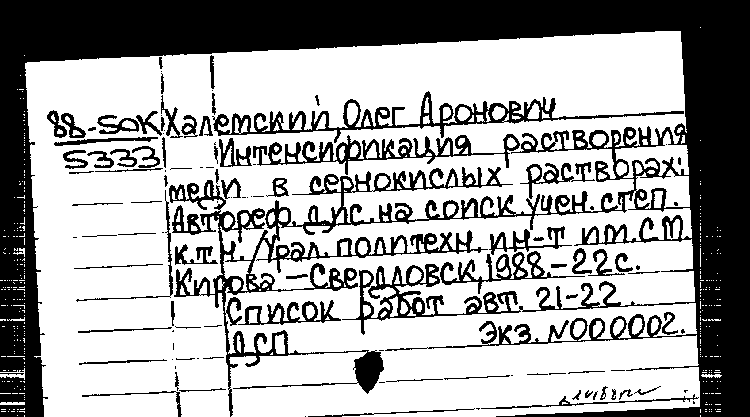 88-5ОК Халемский, Олег Аронович
5333 Интенсификация растворения
меди в сернокислых растворах:
Автореф. дис. на соиск. учен. степ.
к.т.н. /Урал. политехн. ин-т им. С.М.
Кирова. – Свердловск, 1988. – 22 с.
Список работ авт. 21-22.
ДСП. Экз. N000002.